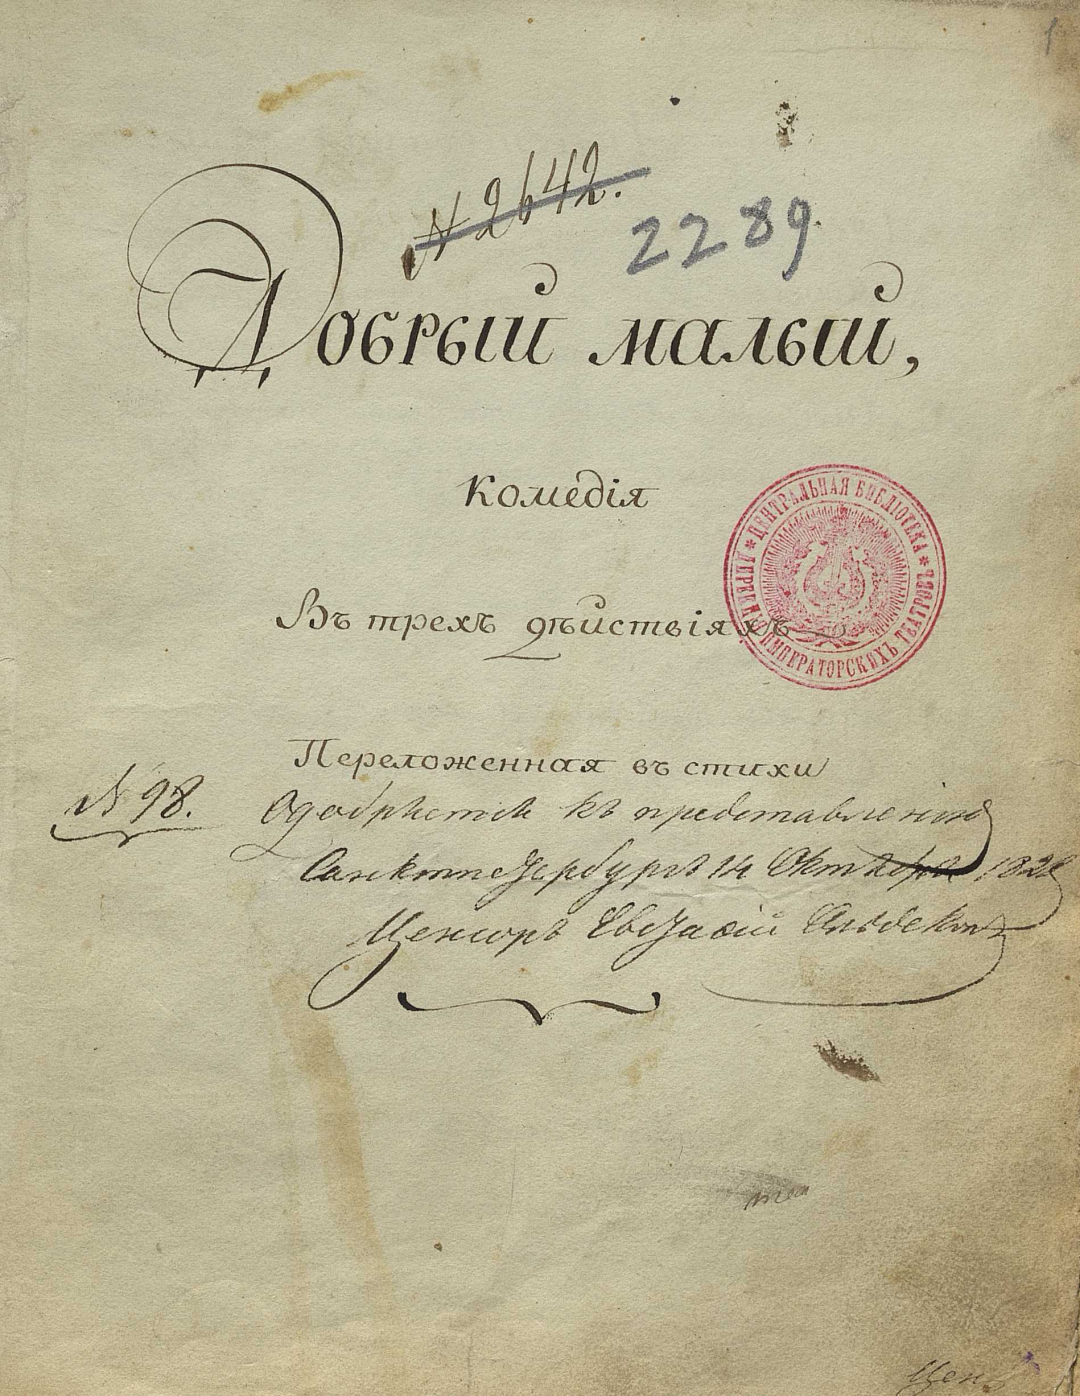 1
N 2642.
2289.
Добрый малый,
Комедія
Въ трехъ дѣйствіяхъ
ЦЕНТРАЛЬНАЯ БИБЛІОТЕКА
ИМПЕРАТОРСКИХЪ ТЕАТРОВЪ
Переложенная въ стихи
N 98.
Одобряется къ представленію
Санктпетербургъ 14 Октября 182
Ценсоръ Евстафій Ольдекопъ
Цен